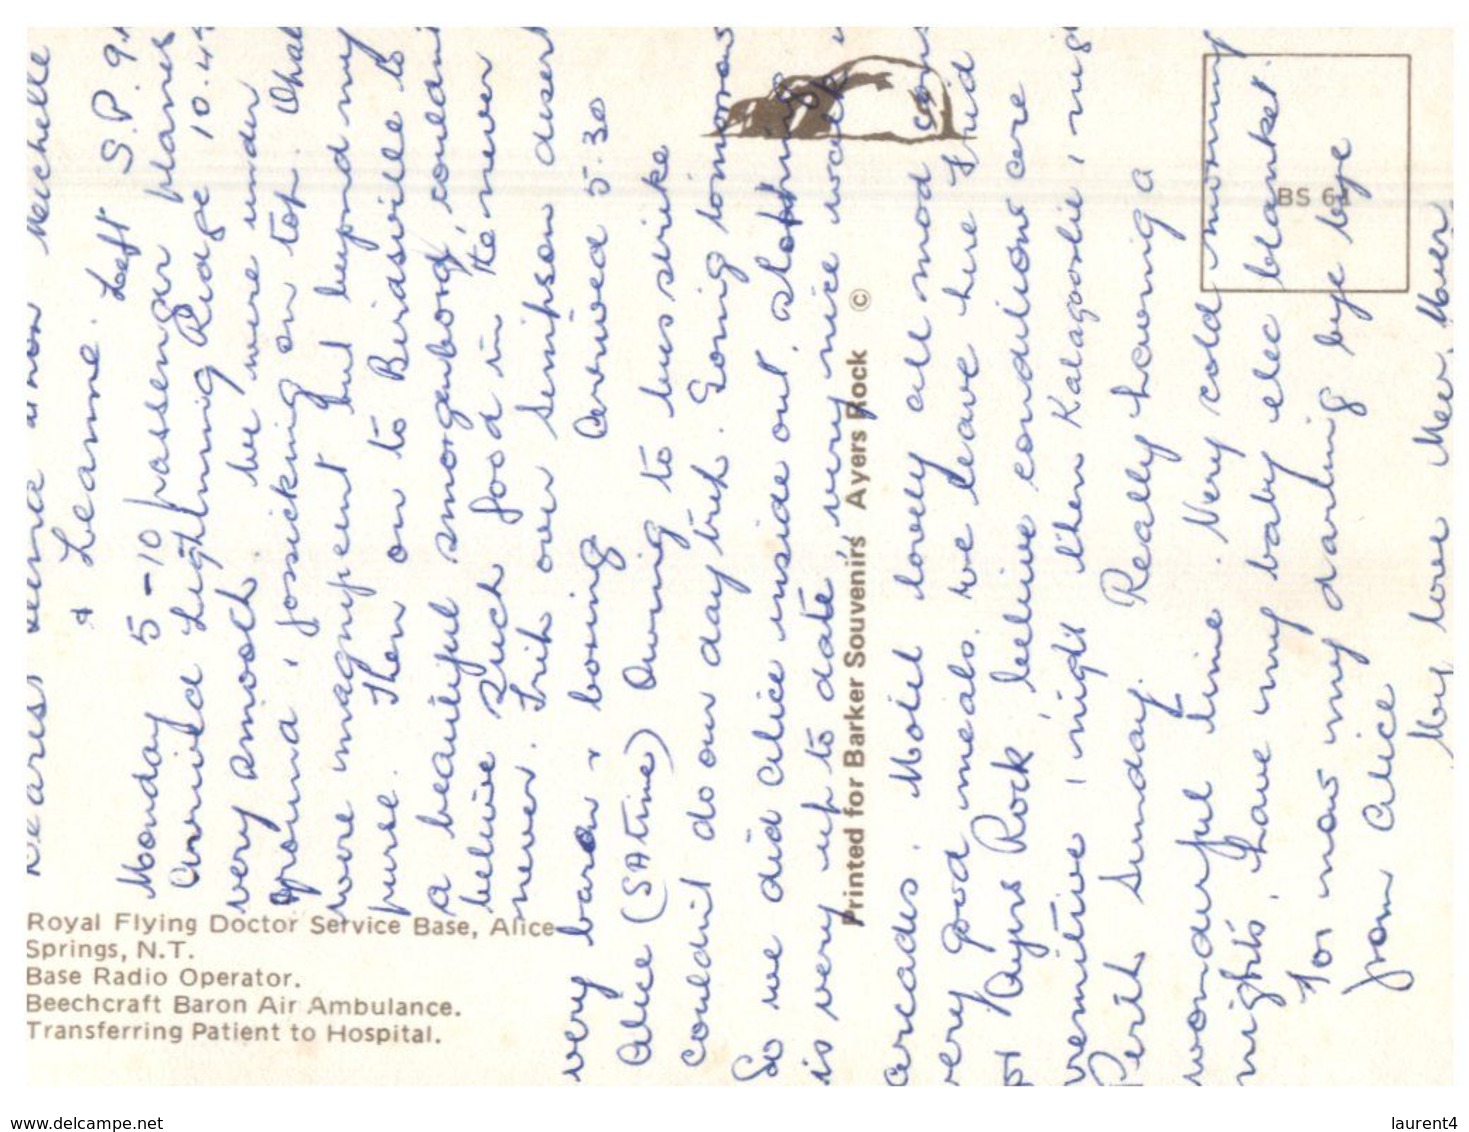 Dearest Lennie Mechelle
& Leanne. Left S.P. 9.
Monday 5-10 passenger planes
Arrived Lightning Ridge 10.4
very smooth he were under
ground, fossicking on top. Opals
were magnificent but beyond my
purse. Then on to Birdsville to
a beautiful smorgasbord, couldn't
believe such food in the never
never. Trip over Simpson desert
very baron & boring Arrived 5.30
Alice (SAtime) Owing to bus strike
couldn't do our day trip. Going tomorrow
So we did Alice inside out. shopping
is very up to date very nice
arcades. Motel lovely all mod con
very good meals. We leave here Wed
for Ayrs Rock, believe conditions are
premitive, 1 night then Kalagoolie, 1 nig
Perth Sunday. Really having a
wonderful time Very cold morning
nights, have my baby elec blanket.
For now my darling bye bye
from Alice
My love Mer.
Royal Flying Doctor Service Base, Alice
Springs, N.T.
Base Radio Operator.
Beechcraft Baron Air Ambulance.
Transferring Patient to Hospital.
Printed for Barker Souvenirs Ayers Rock ©
BS 61
www.delcampe.net
laurent4